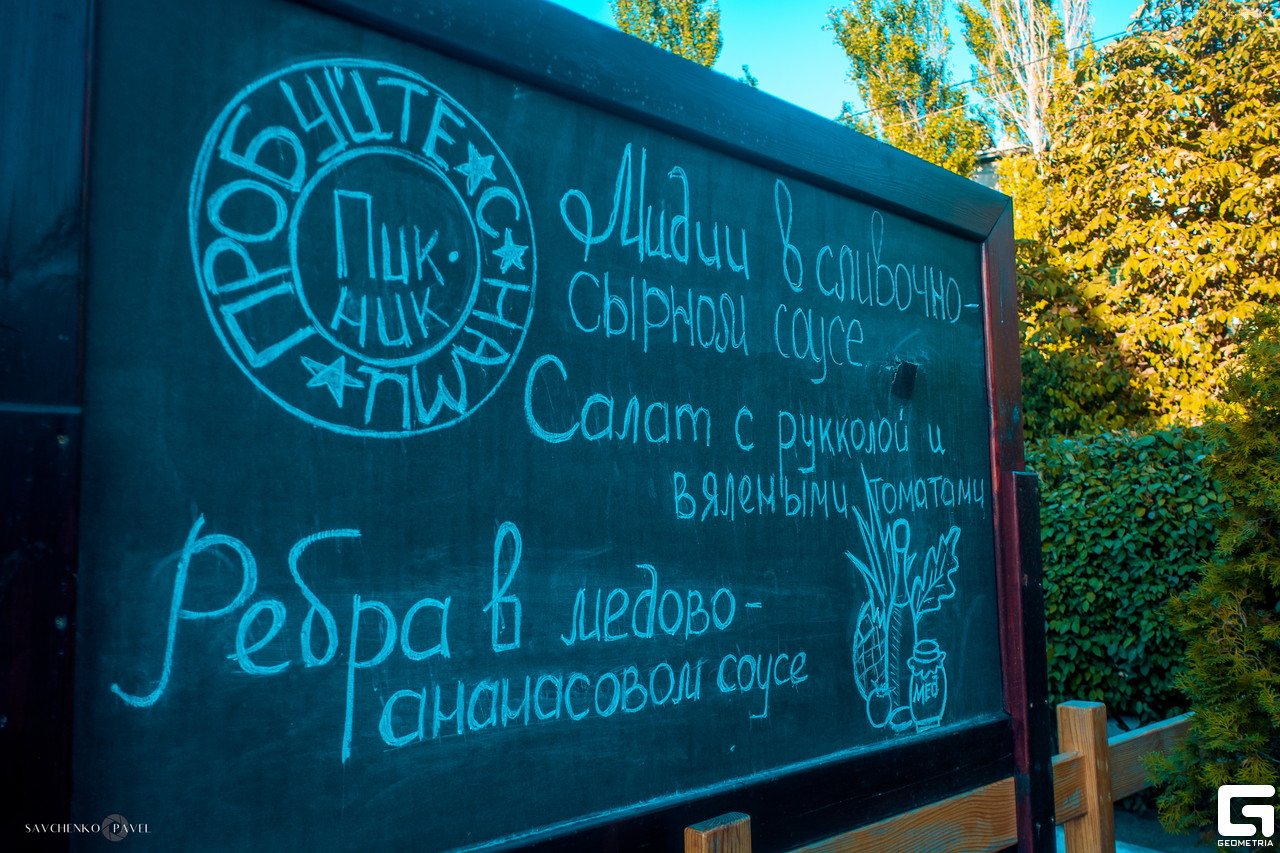 ПРОБУЙТЕ С НАМИ
Пик-
ник
Мидии в сливочно-
сырном соусе
Салат с рукколой и
вялеными томатами
Ребра в медово-
ананасовом соусе
МЕД
SAVCHENKO PAVEL
GEOMETRIA